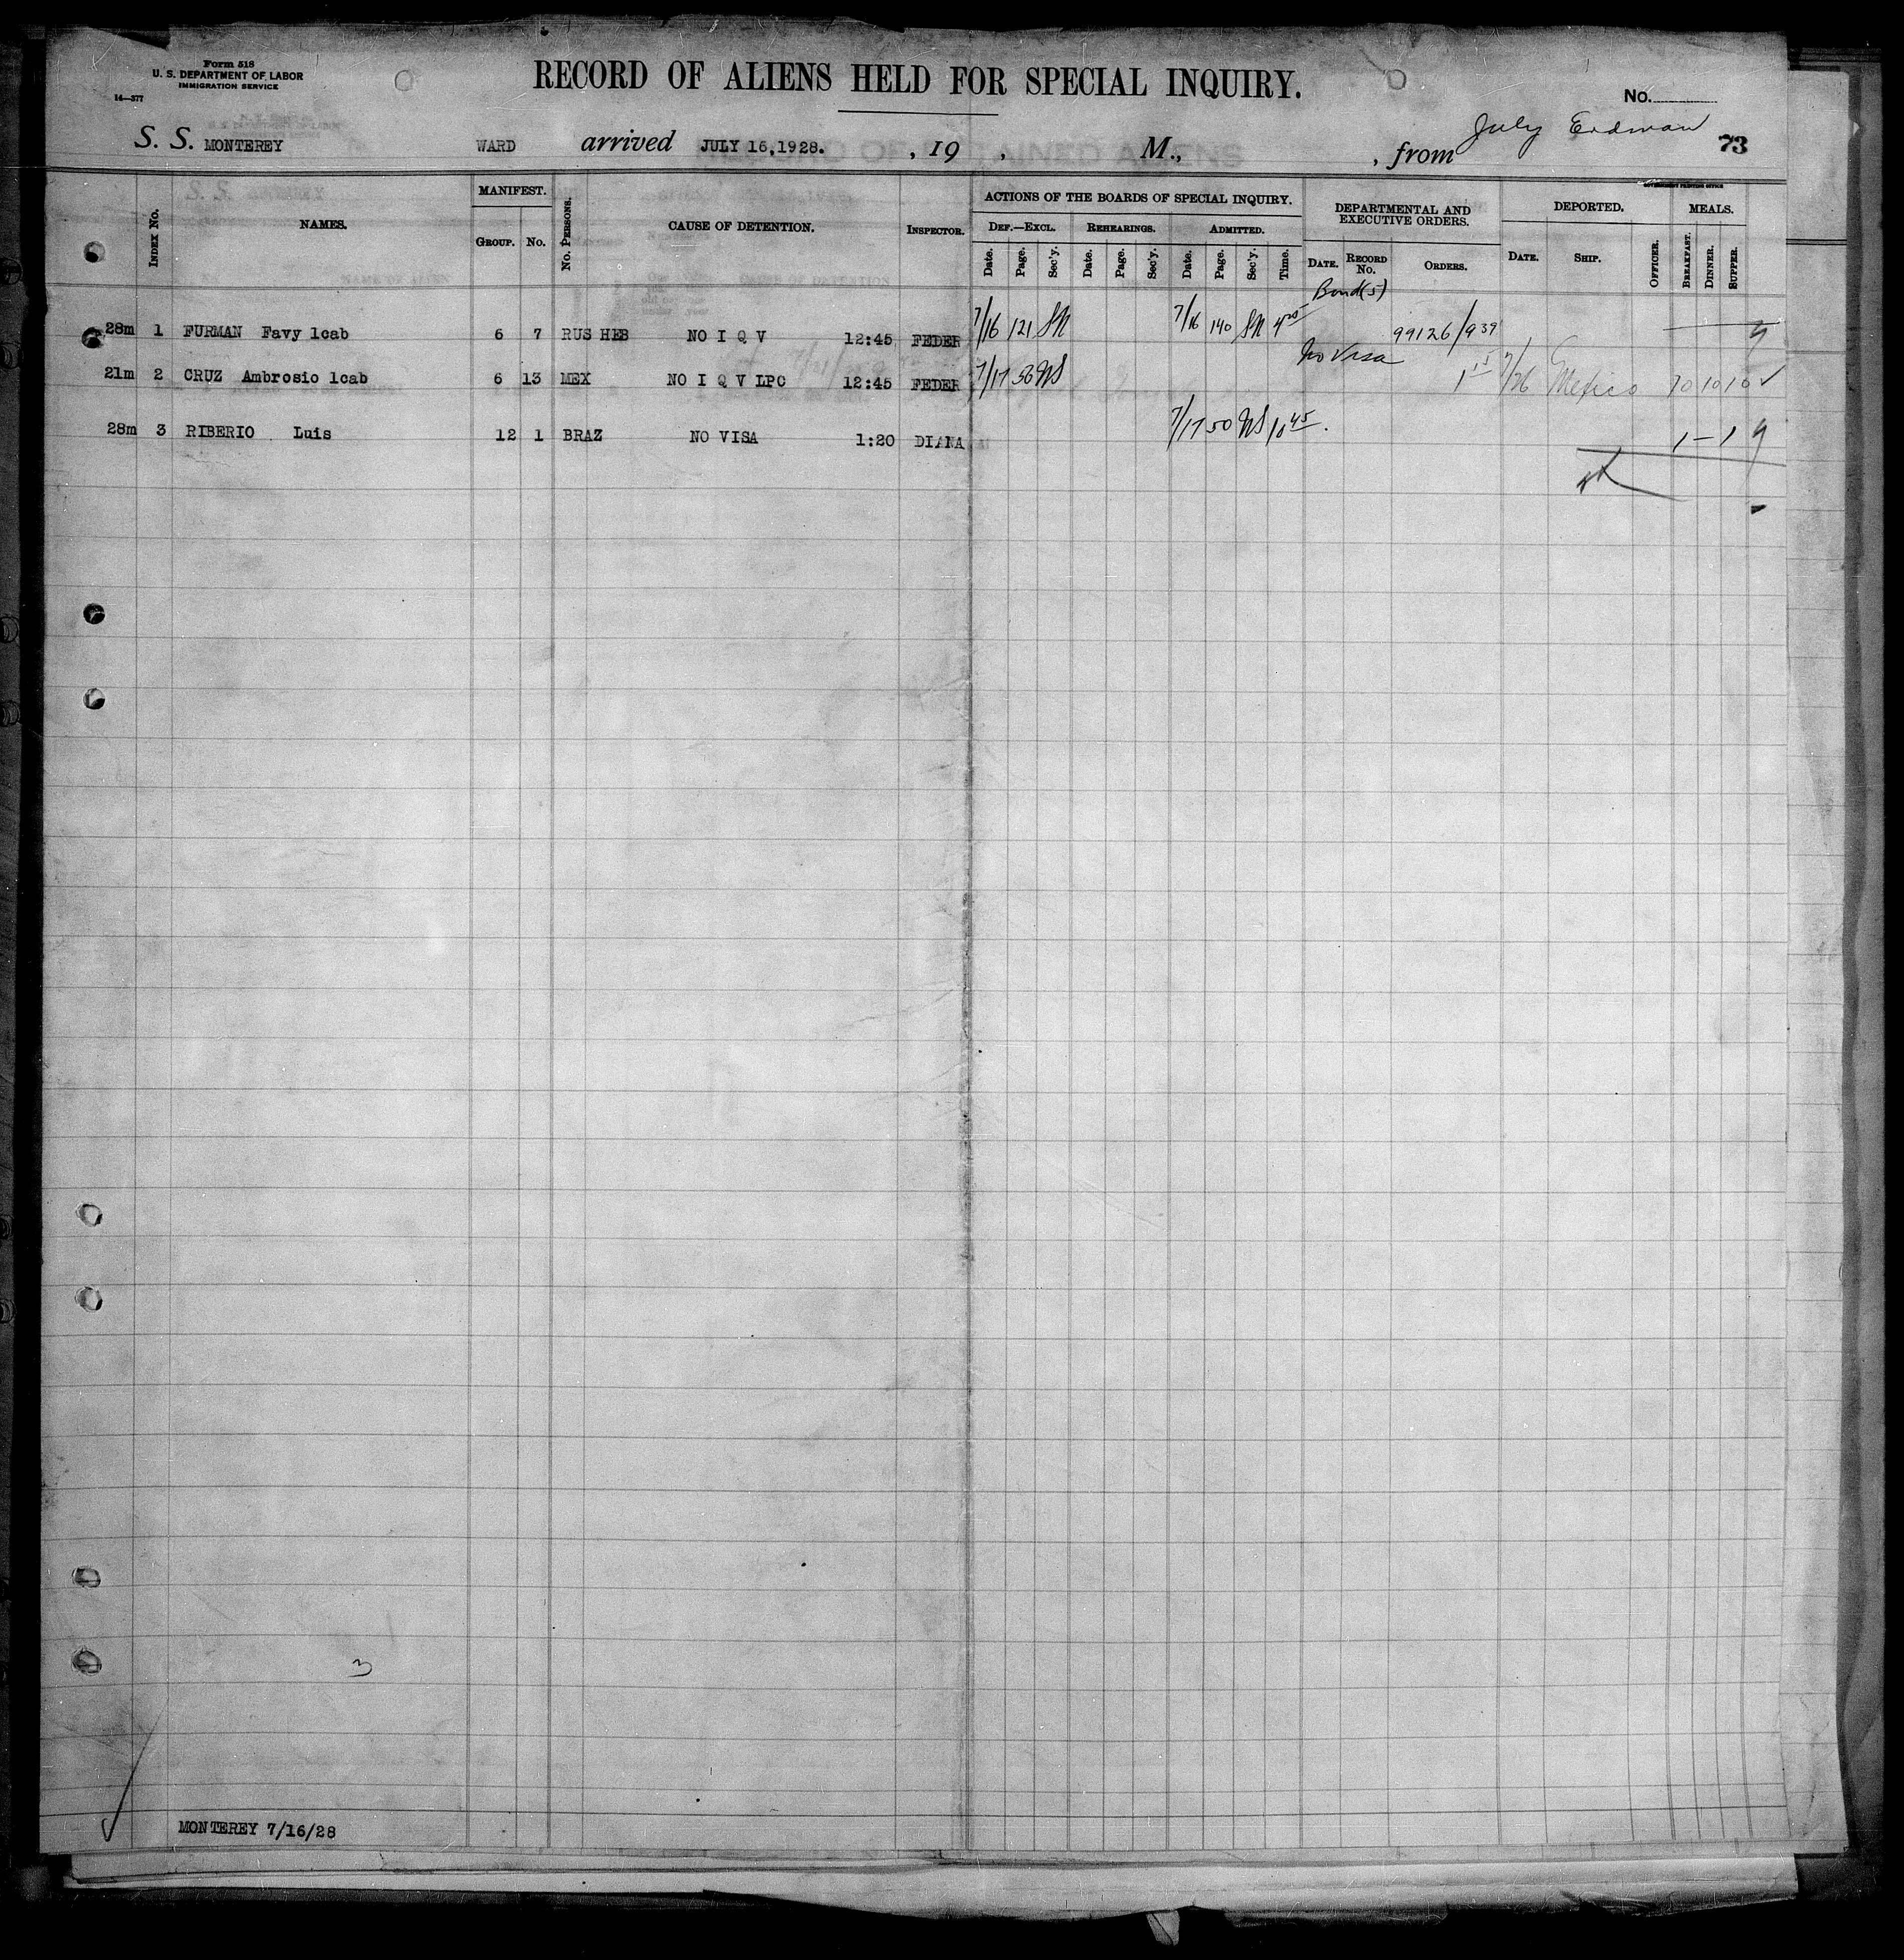 Form 518
U. S. DEPARTMENT OF LABOR
IMMIGRATION SERVICE
14—377
RECORD OF ALIENS HELD FOR SPECIAL INQUIRY.
No.
S. S. MONTEREY WARD arrived JULY 16,1928. , 19 , M., , from July Erdman 73
GOVERNMENT PRINTING OFFICE
INDEX No. NAMES. MANIFEST. GROUP. No. No. PERSONS. CAUSE OF DETENTION. INSPECTOR. ACTIONS OF THE BOARDS OF SPECIAL INQUIRY. DEF.—EXCL. Date. Page. Sec'y. REHEARINGS. Date. Page. Sec'y. ADMITTED. Date. Page. Sec'y. Time. DEPARTMENTAL AND EXECUTIVE ORDERS. DATE. RECORD No. ORDERS. DEPORTED. DATE. SHIP. OFFICER. MEALS. BREAKFAST. DINNER. SUPPER.
Bond(5)
28m 1 FURMAN Favy 1cab 6 7 RUS HEB NO I Q V 12:45 FEDER 7/16 121 SN 7/16 140 SN 4 20 99126/939
No Visa
21m 2 CRUZ Ambrosio 1cab 6 13 MEX NO I Q V LPC 12:45 FEDER 7/17 56 NS 1 15 7/26 Mexico 10 10 10 ✓
28m 3 RIBERIO Luis 12 1 BRAZ NO VISA 1:20 DIANA 7/17 50 NS 10 45. 1 – 1
3
MONTEREY 7/16/28